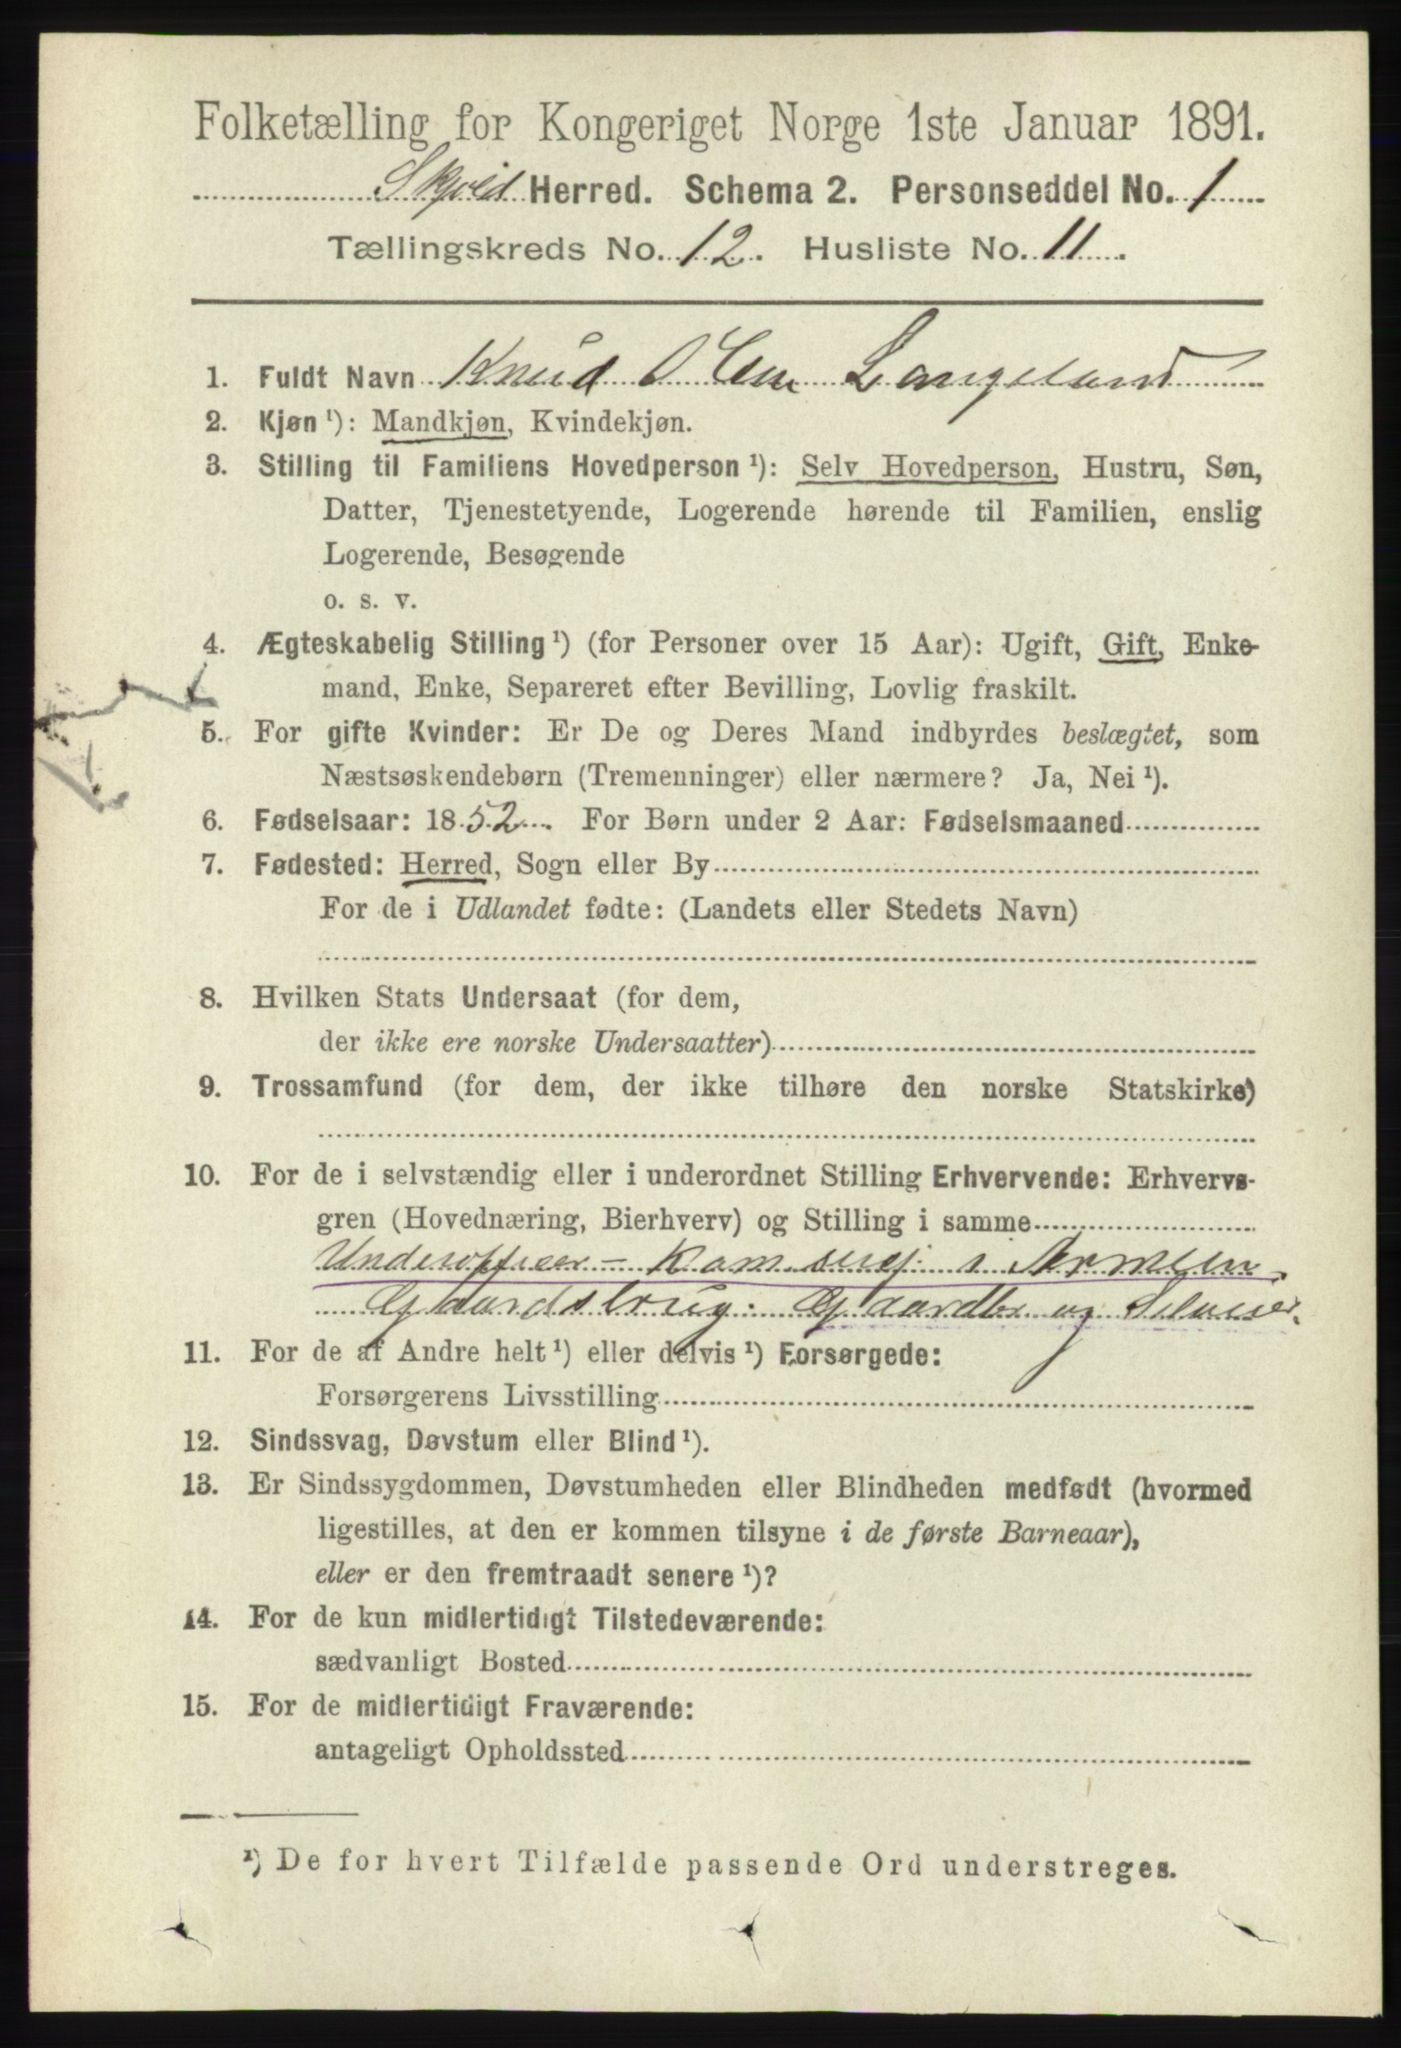 Folketælling for Kongeriget Norge 1ste Januar 1891.
Skjold Herred. Schema 2. Personseddel No. 1
Tællingskreds No. 12. Husliste No. 11.
1. Fuldt Navn Knud Olsen Langeland
2. Kjøn ¹): Mandkjøn, Kvindekjøn.
3. Stilling til Familiens Hovedperson ¹): Selv Hovedperson, Hustru, Søn,
Datter, Tjenestetyende, Logerende hørende til Familien, enslig
Logerende, Besøgende
o. s. v.
4. Ægteskabelig Stilling ¹) (for Personer over 15 Aar): Ugift, Gift, Enke-
mand, Enke, Separeret efter Bevilling, Lovlig fraskilt.
5. For gifte Kvinder: Er De og Deres Mand indbyrdes beslægtet, som
Næstsøskendebørn (Tremenninger) eller nærmere? Ja, Nei ¹).
6. Fødselsaar: 1852. For Børn under 2 Aar: Fødselsmaaned
7. Fødested: Herred, Sogn eller By
For de i Udlandet fødte: (Landets eller Stedets Navn)
8. Hvilken Stats Undersaat (for dem,
der ikke ere norske Undersaatter)
9. Trossamfund (for dem, der ikke tilhøre den norske Statskirke)
10. For de i selvstændig eller i underordnet Stilling Erhvervende: Erhvervs-
gren (Hovednæring, Bierhverv) og Stilling i samme
Underofficer - i Armeen.
Gaardsbrug. Gaardbr og Selveier.
11. For de af Andre helt ¹) eller delvis ¹) Forsørgede:
Forsørgerens Livsstilling
12. Sindssvag, Døvstum eller Blind ¹).
13. Er Sindssygdommen, Døvstumheden eller Blindheden medfødt (hvormed
ligestilles, at den er kommen tilsyne i de første Barneaar),
eller er den fremtraadt senere ¹)?
14. For de kun midlertidigt Tilstedeværende:
sædvanligt Bosted
15. For de midlertidigt Fraværende:
antageligt Opholdssted
¹) De for hvert Tilfælde passende Ord understreges.